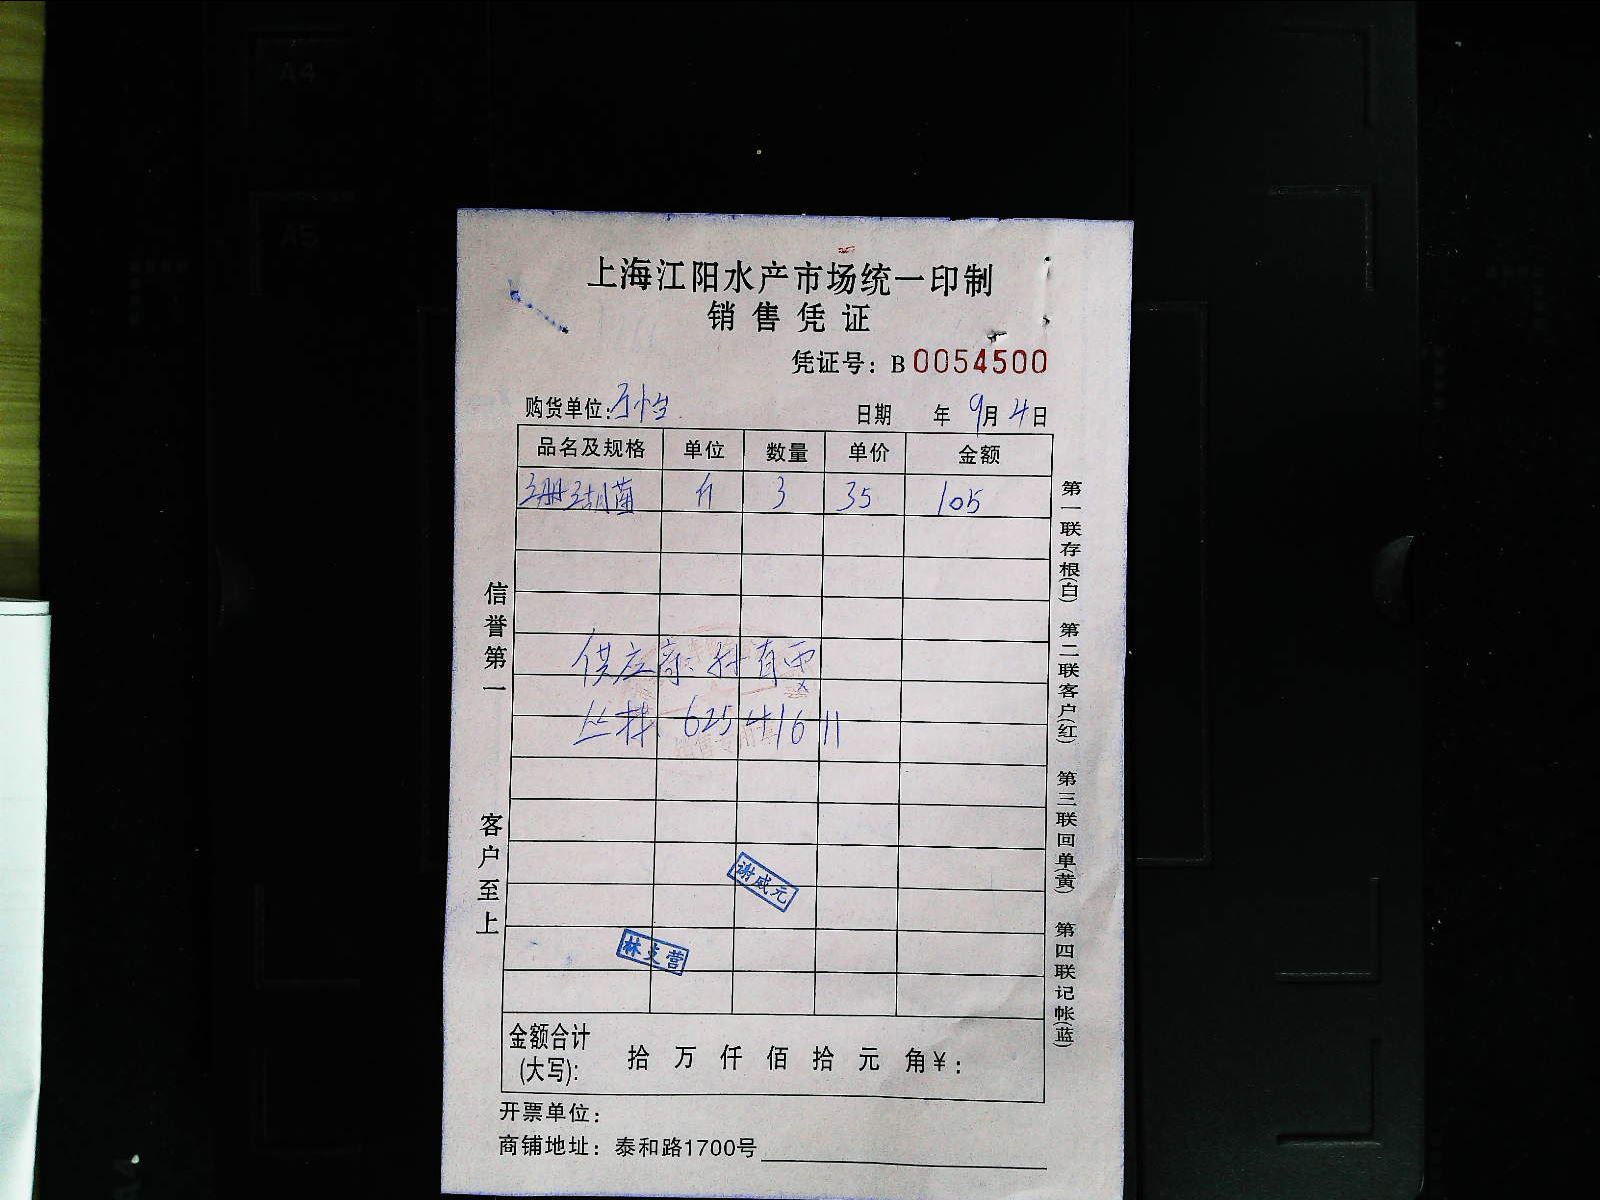 A4
A5
上海江阳水产市场统一印制
销售凭证
凭证号：B 0054500
购货单位：万怡
日期 年 9月 4日
品名及规格 单位 数量 单价 金额
珊瑚菌 斤 3 35 105
供应商：
625 416 11
谢成元
林支营
金额合计(大写)： 拾 万 仟 佰 拾 元 角 ¥：
开票单位：
商铺地址：泰和路1700号
信誉第一 客户至上
第一联存根(白) 第二联客户(红) 第三联回单(黄) 第四联记帐(蓝)